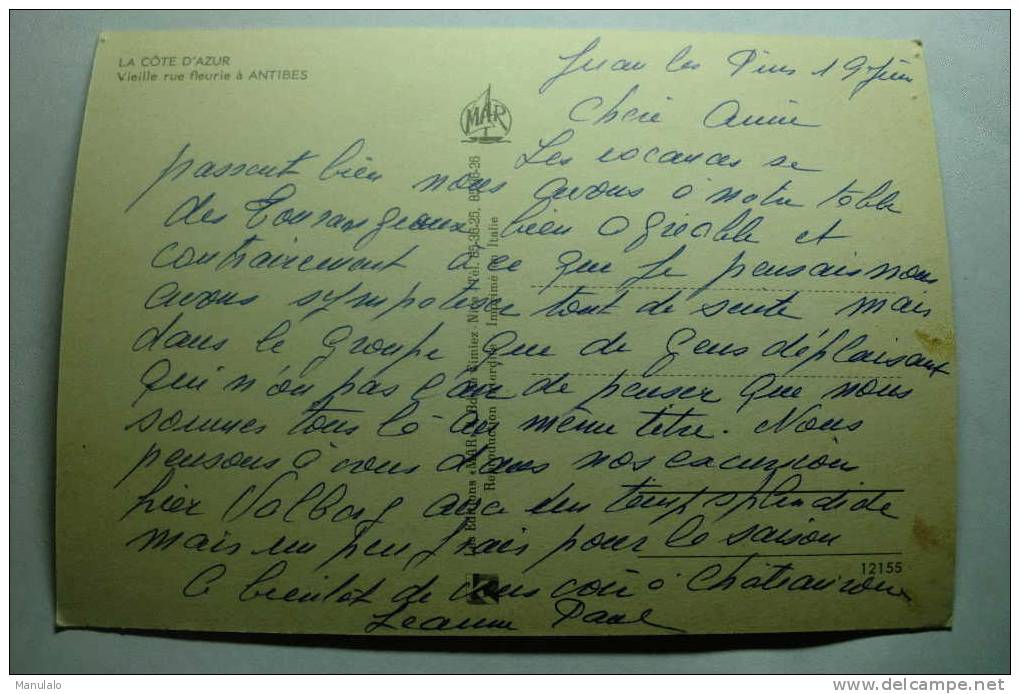 LA CÔTE D'AZUR
Vieille rue fleurie à ANTIBES
MAR
Juan les Pins 19 Juin
Chère Amie
Les vacances se
passent bien nous avons à notre table
des Tourangeaux bien agréable et
contrairement à ce que je pensais nous
avons sympatisé tout de suite mais
dans le groupe que de gens déplaisant
qui n'on pas l'air de penser que nous
sommes tous là au même titre. Nous
pensons à vous dans nos excursion
hier Valbonne avec un temps splendide
mais un peu frais pour la saison
A bientôt de vous voir à Châteauroux
Jeanne Paul
Les Editions «MAR» Bd de Cimiez - Nice Tél. 85-36-25, 85-36-26
Reproduction interdite Imprimé en Italie
12155
Manulalo
delcampe.net